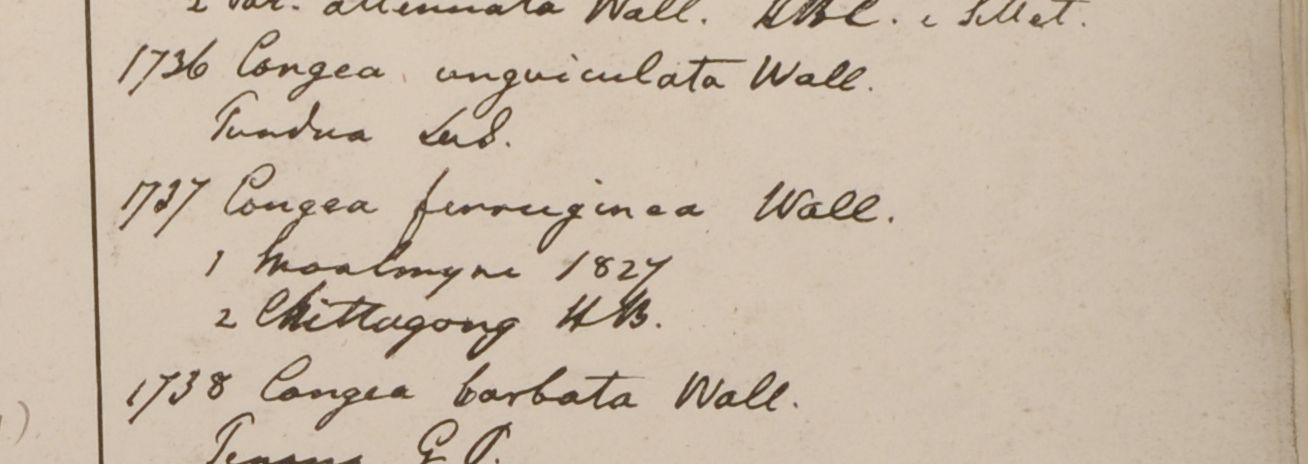 2 Var. attenuata Wall. HBC. e Sillet.
1736 Congea unguiculata Wall.
Tundua
1737 Congea ferruginea Wall.
1 Moalmyne 1827
2 Chittagong HB.
1738 Congea barbata Wall.
Penang G.P.